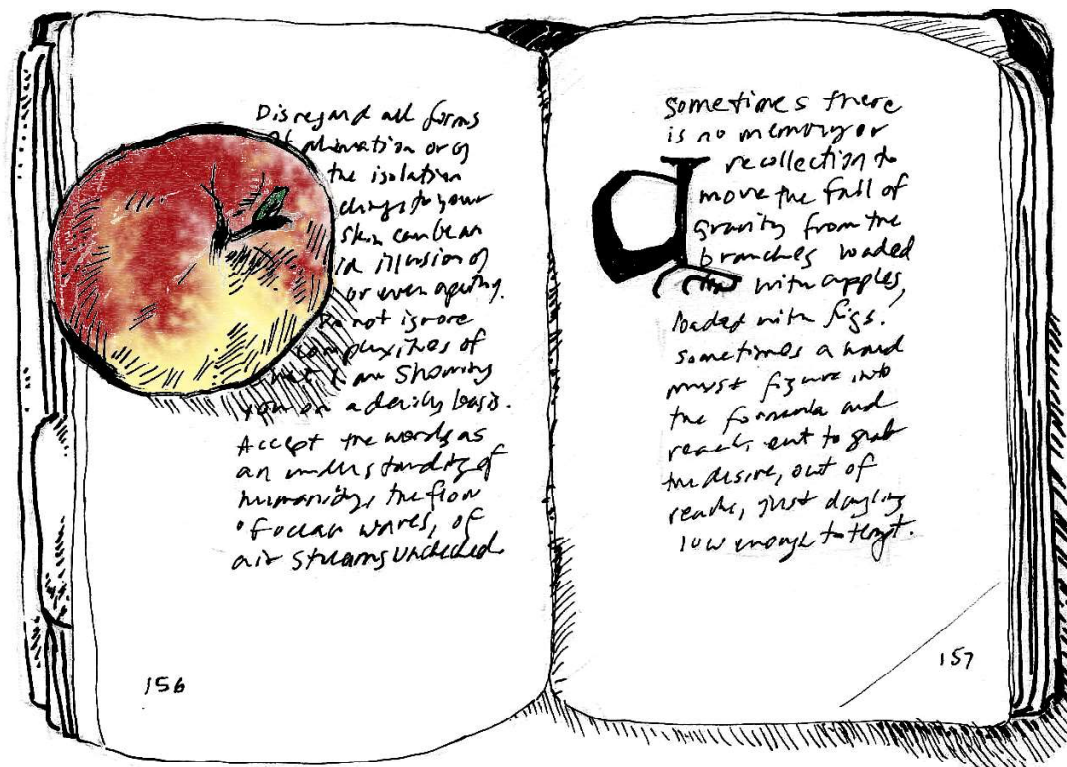 Disregard all forms
of animation or of
the isolation
clings to your
skin can be an
illusion of
or even apathy.
Do not ignore
complexities of
what I am showing
you on a daily basis.
Accept the words as
an understanding of
humanity, the flow
of ocean waves, of
air streams unchecked
156
sometimes there
is no memory or
recollection to
move the fall of
gravity from the
branches loaded
with apples,
loaded with figs.
sometimes a hand
must figure into
the formula and
reach out to grab
the desire, out of
reach, just dangling
low enough to tempt.
157